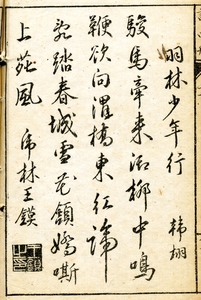 羽林少年行 韓翃
駿馬牽來御柳中鳴
鞭欲向渭橋東紅蹄
亂踏春城雪花頷嬌嘶
上苑風 虎林王鏌